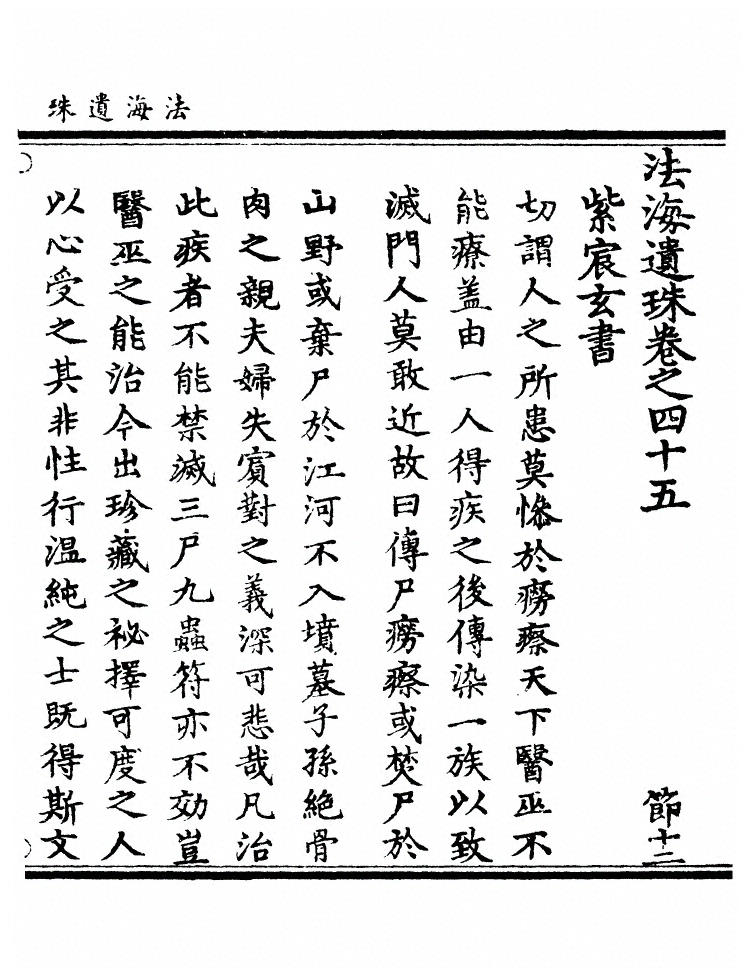 法海遺珠
法海遺珠卷之四十五 節十二
紫宸玄書
切謂人之所患莫慘於癆瘵天下醫巫不
能療盖由一人得疾之後傳染一族以致
滅門人莫敢近故曰傳尸癆瘵或焚尸於
山野或棄尸於江河不入墳墓子孫絶骨
肉之親夫婦失賓對之義深可悲哉凡治
此疾者不能禁滅三尸九蟲符亦不効豈
醫巫之能治今出珍藏之祕擇可度之人
以心受之其非性行溫純之士既得斯文